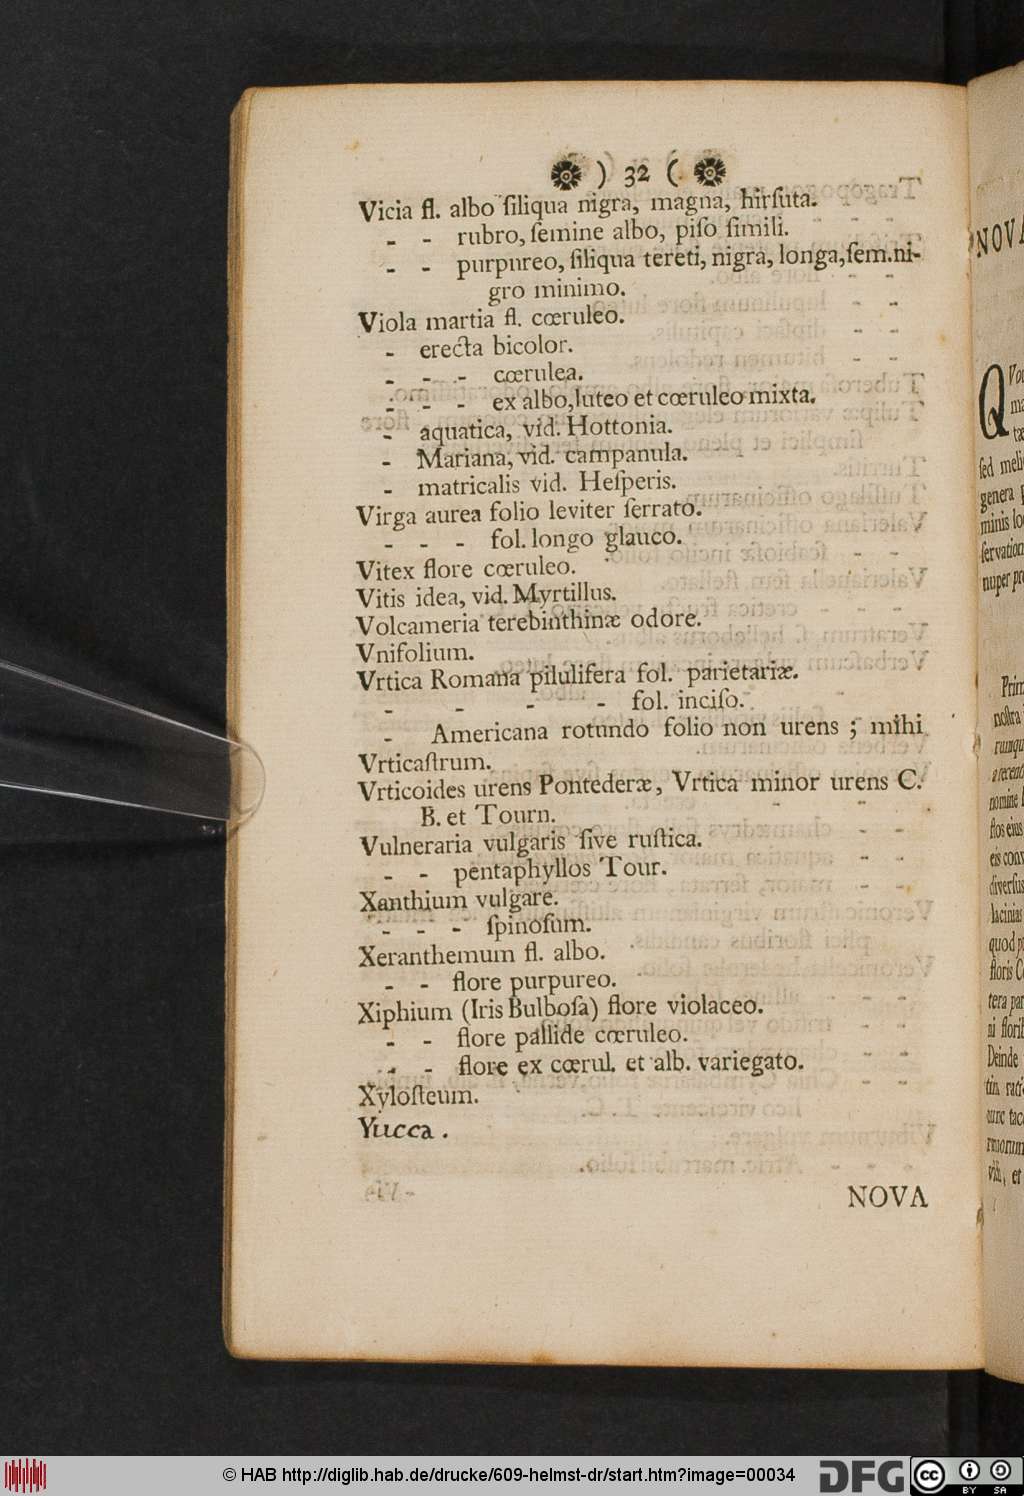 ) 32 (
Vicia fl. albo ſiliqua nigra, magna, hirſuta.
- - rubro, ſemine albo, piſo ſimili.
- - purpureo, ſiliqua tereti, nigra, longa, ſem. ni-
gro minimo.
Viola martia fl. cœruleo.
- erecta bicolor.
- - - cœrulea.
- - - ex albo, luteo et cœruleo mixta.
- aquatica, vid. Hottonia.
- Mariana, vid. campanula.
- matricalis vid. Heſperis.
Virga aurea folio leviter ſerrato.
- - - fol. longo glauco.
Vitex flore cœruleo.
Vitis idea, vid. Myrtillus.
Volcameria terebinthinæ odore.
Vnifolium.
Vrtica Romana pilulifera fol. parietariæ.
- - - - fol. inciſo.
- Americana rotundo folio non urens ; mihi
Vrticaſtrum.
Vrticoides urens Pontederæ, Vrtica minor urens C.
B. et Tourn.
Vulneraria vulgaris ſive ruſtica.
- - pentaphyllos Tour.
Xanthium vulgare.
- - - ſpinoſum.
Xeranthemum fl. albo.
- - flore purpureo.
Xiphium (Iris Bulboſa) flore violaceo.
- - flore pallide cœruleo.
- - flore ex cœrul. et alb. variegato.
Xyloſteum.
Yucca.
NOVA
NOVA
ſed
genera
minis
nuper
noſtra
nomine
flos eius
quod
floris
tera
Deinde
et
© HAB http://diglib.hab.de/drucke/609-helmst-dr/start.htm?image=00034
DFG
cc
BY SA